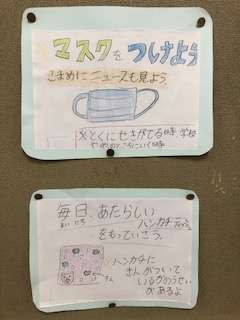 マスクをつけよう
こまめにニュースも見よう
※とくにせきがでる時、学校
毎日、あたらしい
まい にち
ハンカチ
をもっていこう。
ハンカチに
きんがついて
いるかのうせい
があるよ
きん